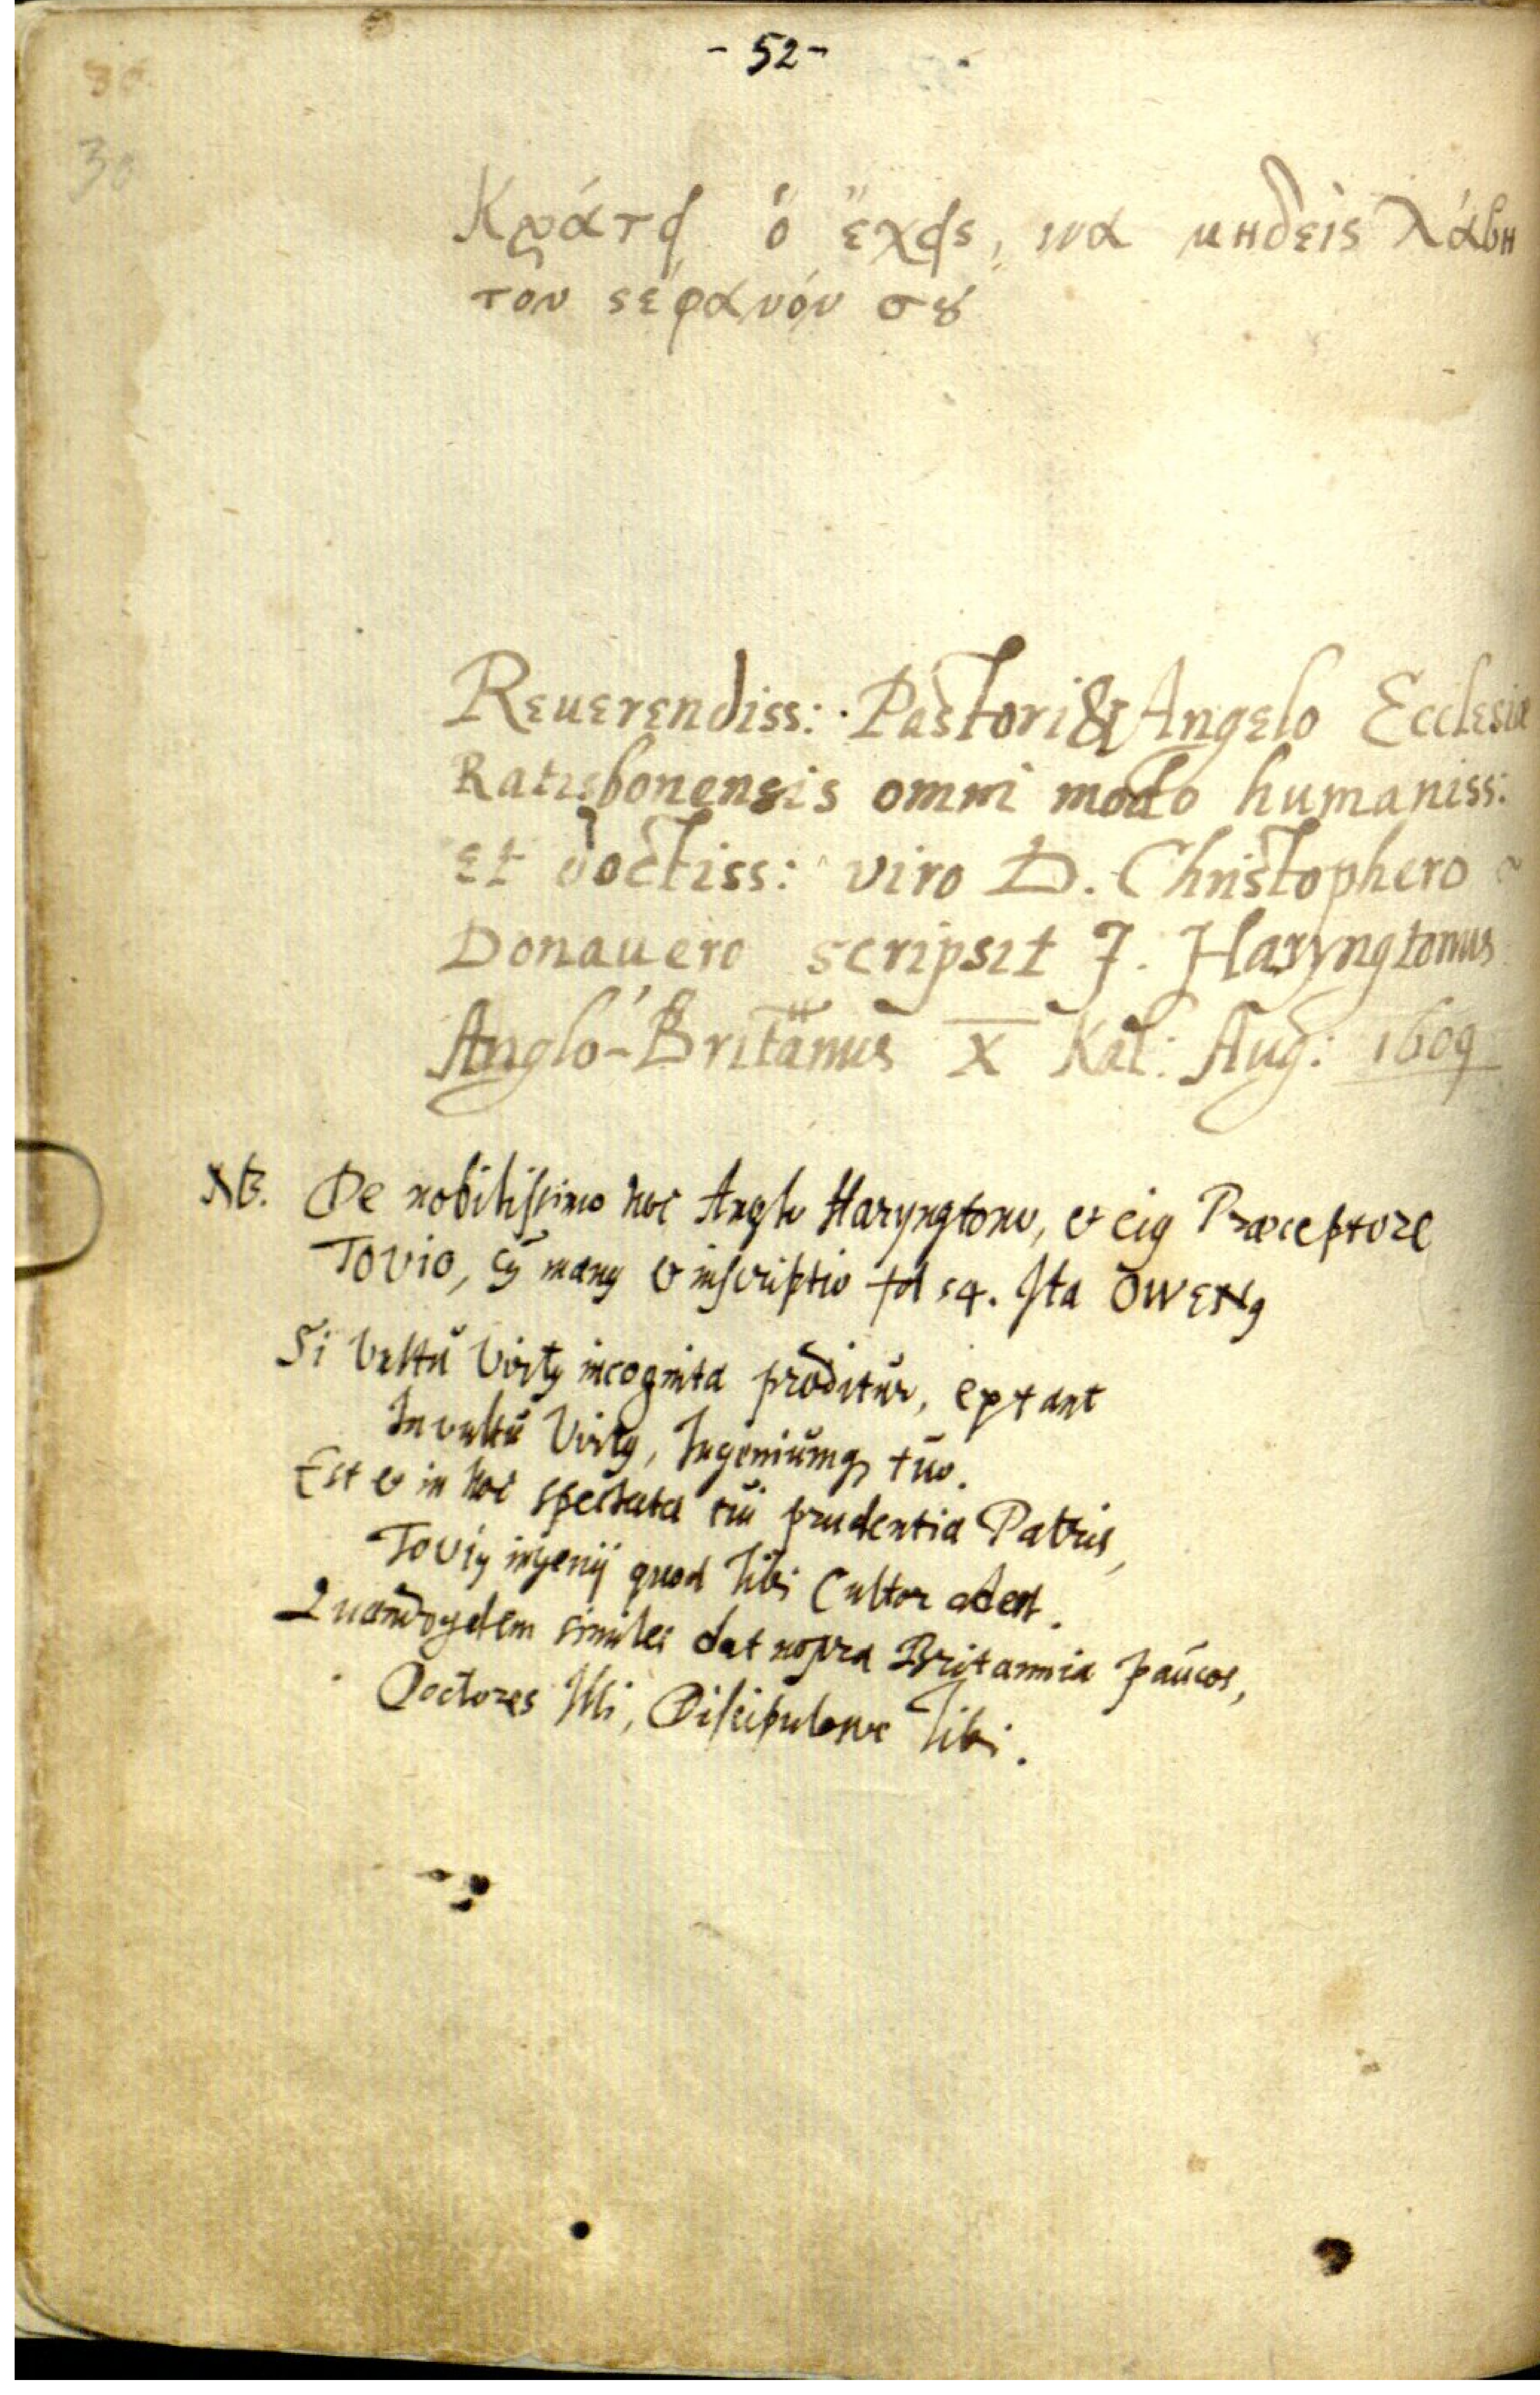 - 52 -
30
30
Κράτει ὃ ἔχεις, ινα μηδεὶς λάβη
τὸν ϛέφανόν σȣ
Reuerendiss: Pastori & Angelo Ecclesiæ
Ratisbonensis omni modo humaniss:
et doctiss: viro D. Christophero
Donauero scripsit J. Haryngtonus
Anglo-Britannus X Kal: Aug: 1609
NB. De nobilissimo hoc Anglo Haryngtono, et eiꝰ Præceptore
Tovio, cꝰ manꝰ & inscriptio fol 54. Ita OWENꝰ
Si Vultu Virtꝰ incognita proditur, extant
In vultu Virtꝰ, Ingeniumqꝫ tuo.
Est & in hoc spectata tui prudentia Patris,
Toviꝰ ingenij quod tibi Cultor adest.
Quandoqdem similes dat nostra Britannia paucos,
Doctores Illi, Discipulosve tibi.